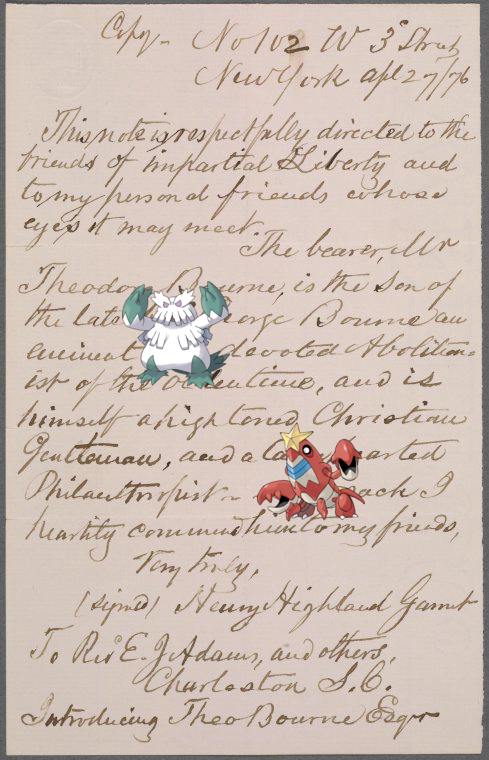 Copy - No 102 W 3d Street
New York apl 27/76
This note is respectfully directed to the
friends of impartial Liberty and
to my personal friends whose
eyes it may meet
The bearer, Mr
Theodore Bourne, is the son of
the late George Bourne an
eminent devoted Abolition-
ist of the timе, and is
himself a high toned Christian
Gentleman, and a
Philanthropist - I
heartily commend him to my friends,
Very truly,
(signed) Henry Highland Garnet
To Revd E. J. Adams, and others,
Charleston S. C.
Introducing Theo Bourne Esqr